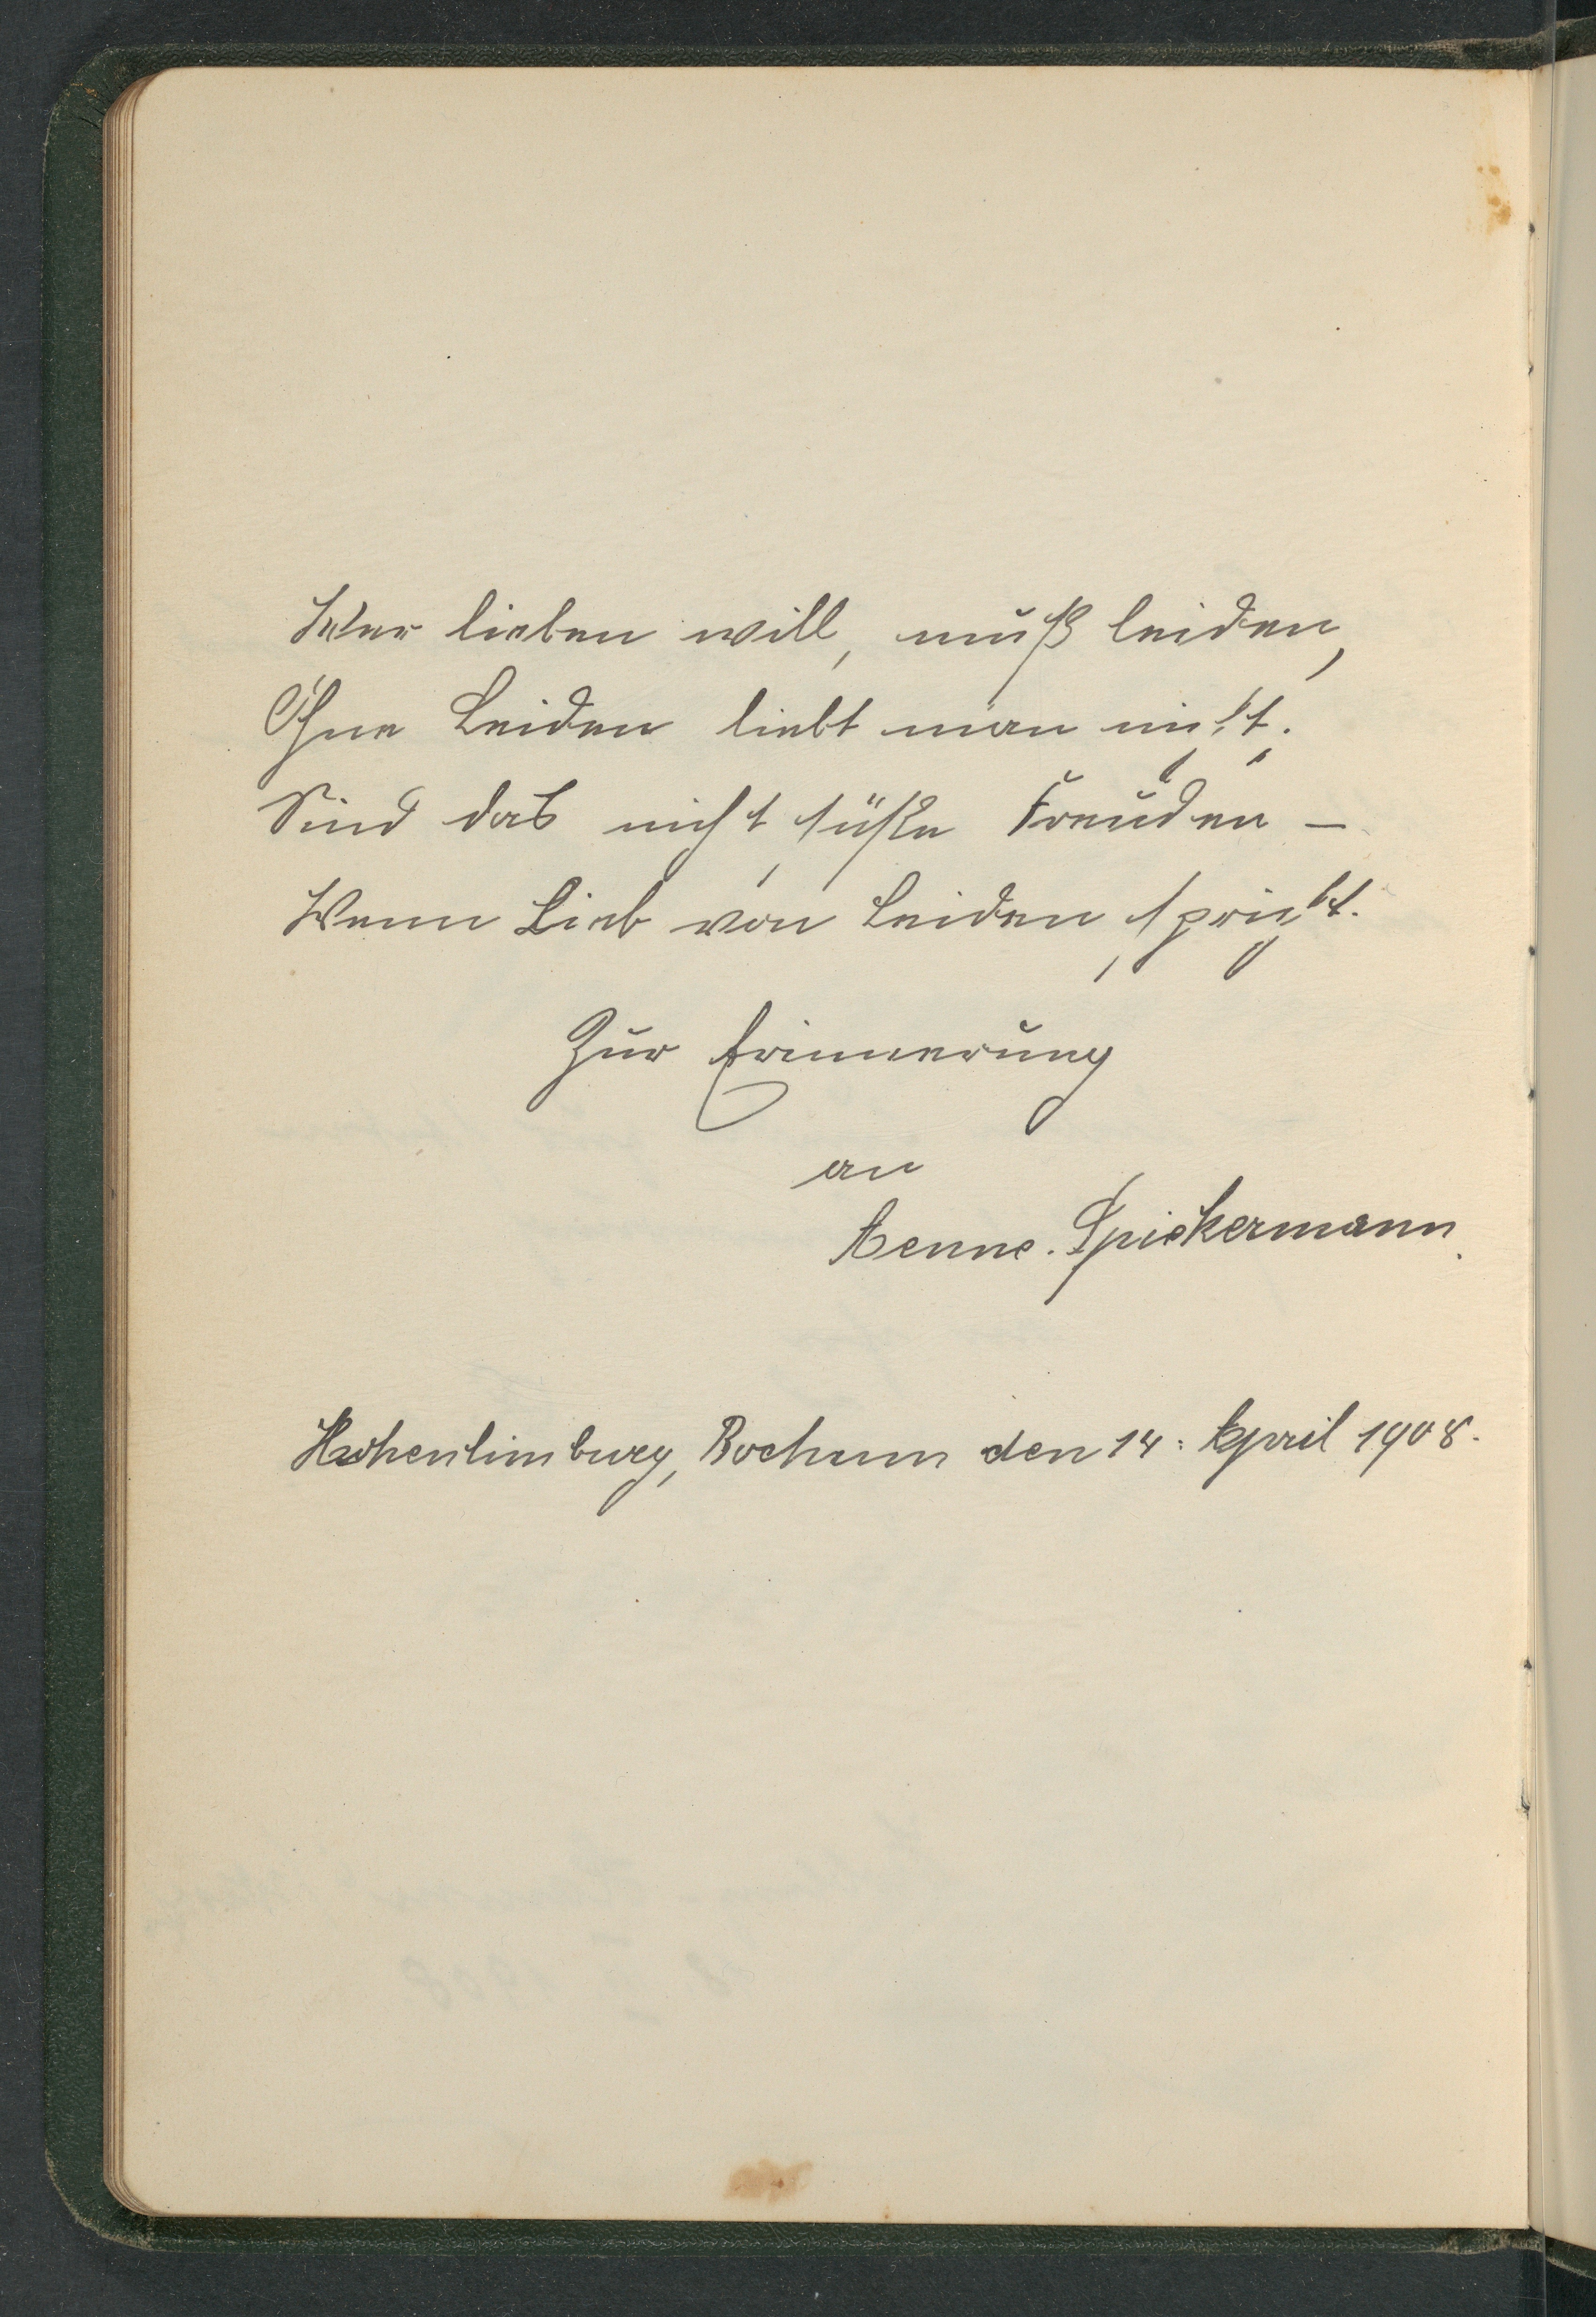 Wer lieben will, muß leiden,
Ohne Leiden liebt man nicht.
Sind das nicht süße Freuden –
Wenn Lieb von Leiden spricht.
Zur Erinnerung
an
Aenne. Spiekermann.
Hohenlimburg, Bochum den 14. April 1908.